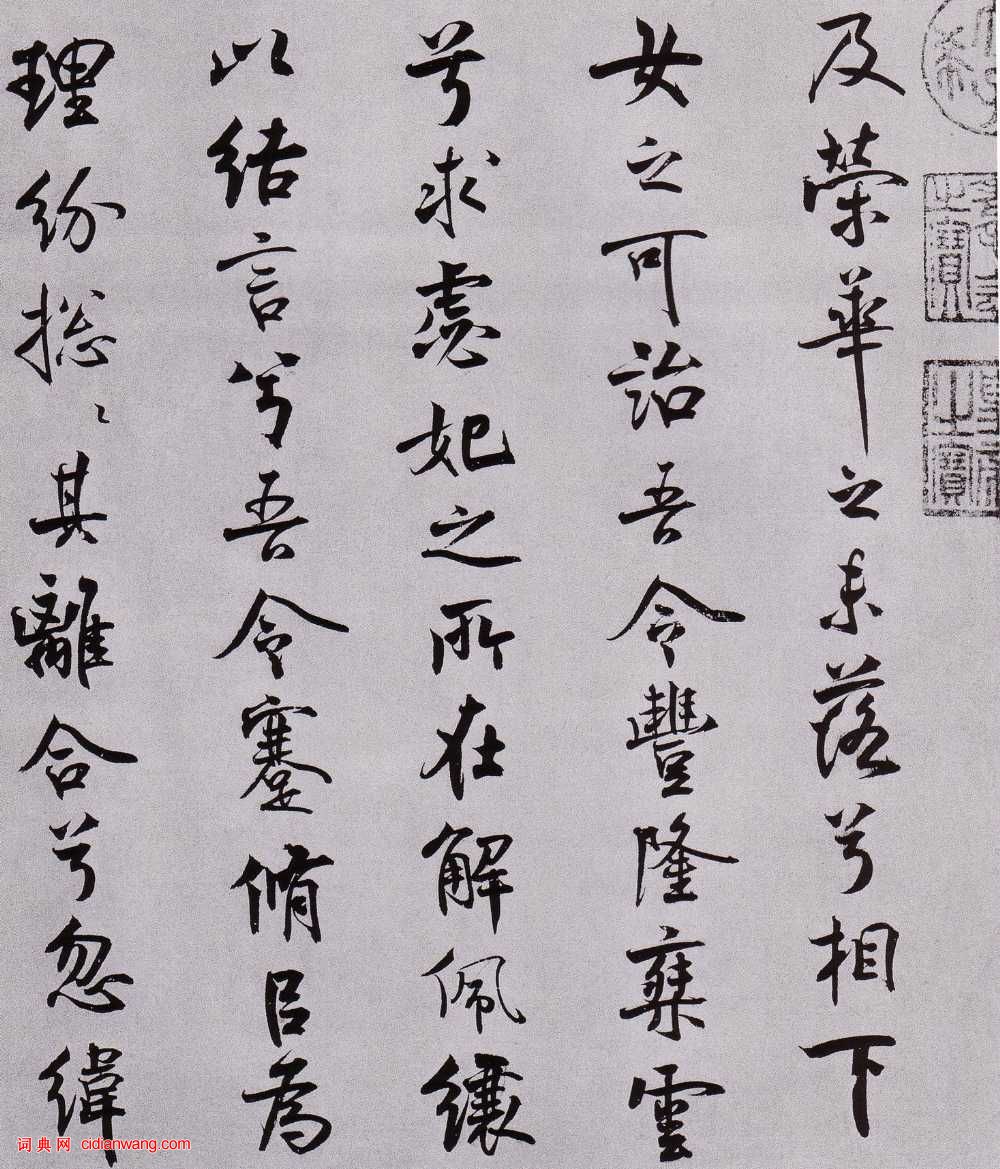 及榮華之未落兮相下
女之可詒吾令豐隆椉雲
兮求虙妃之所在解佩纕
以結言兮吾令蹇脩㠯為
理紛揔〻其離合兮忽緯
之寶
之寶
词典网 cidianwang.com